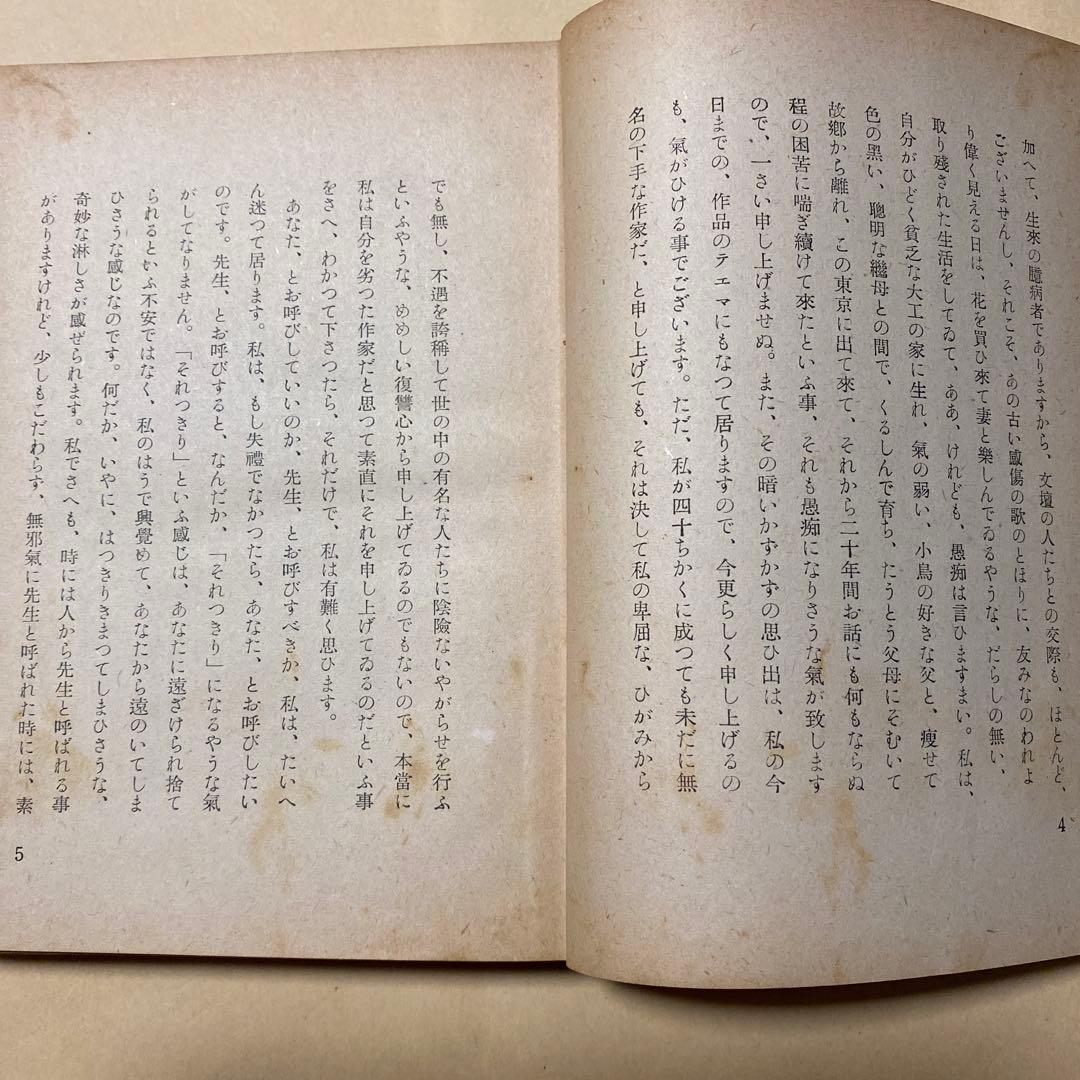 加へて、生來の臆病者でありますから、文壇の人たちとの交際も、ほとんど、
ございませんし、それこそ、あの古い感傷の歌のとほりに、友みなのわれよ
り偉く見える日は、花を買ひ來て妻と樂しんでゐるやうな、だらしの無い、
取り殘された生活をしてゐて、ああ、けれども、愚痴は言ひますまい。私は、
自分がひどく貧乏な大工の家に生れ、氣の弱い、小鳥の好きな父と、瘦せて
色の黑い、聰明な繼母との間で、くるしんで育ち、たうとう父母にそむいて
故鄕から離れ、この東京に出て來て、それから二十年間お話にも何もならぬ
程の困苦に喘ぎ續けて來たといふ事、それも愚痴になりさうな氣が致します
ので、一さい申し上げませぬ。また、その暗いかずかずの思ひ出は、私の今
日までの、作品のテエマにもなつて居りますので、今更らしく申し上げるの
も、氣がひける事でございます。ただ、私が四十ちかくに成つても未だに無
名の下手な作家だ、と申し上げても、それは決して私の卑屈な、ひがみから
4
でも無し、不遇を誇稱して世の中の有名な人たちに陰險ないやがらせを行ふ
といふやうな、めめしい復讐心から申し上げてゐるのでもないので、本當に
私は自分を劣つた作家だと思つて素直にそれを申し上げてゐるのだといふ事
をさへ、わかつて下さつたら、それだけで、私は有難く思ひます。
あなた、とお呼びしていいのか、先生、とお呼びすべきか、私は、たいへ
ん迷つて居ります。私は、もし失禮でなかつたら、あなた、とお呼びしたい
のです。先生、とお呼びすると、なんだか、「それつきり」になるやうな氣
がしてなりません。「それつきり」といふ感じは、あなたに遠ざけられ捨て
られるといふ不安ではなく、私のはうで興覺めて、あなたから遠のいてしま
ひさうな感じなのです。何だか、いやに、はつきりきまつてしまひさうな、
奇妙な淋しさが感ぜられます。私でさへも、時には人から先生と呼ばれる事
がありますけれど、少しもこだわらず、無邪氣に先生と呼ばれた時には、素
5